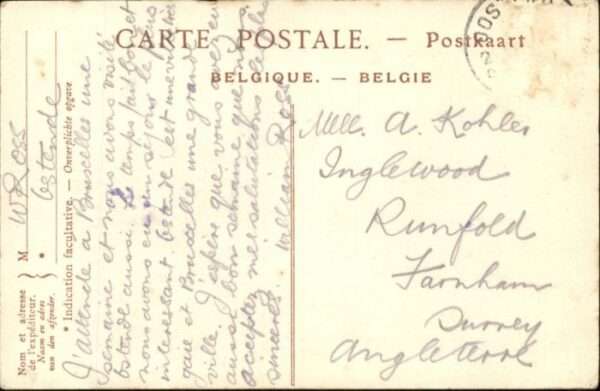 CARTE POSTALE. — Postkaart
BELGIQUE. — BELGIE
OOS
Nom et adresse
de l'expéditeur.
Naam en adres
van den afzender.
M W Ross
Ostende
* Indication facultative. — Onverplichte opgave
J'attende à Bruxelles une
semaine et nous avons visité
Ostende aussi. Le temps fait bon et
nous avons eu un séjour le plus
interessant. Ostende est une vi très
gaie et Bruxelles une grande
ville. J'espère que vous avez eu
aussi bon semaine que nous
acceptez mes salutations les plus
sincères. William Ross
Mlle. A. Kohler
Inglewood
Runfold
Farnham
Surrey
Angleterre